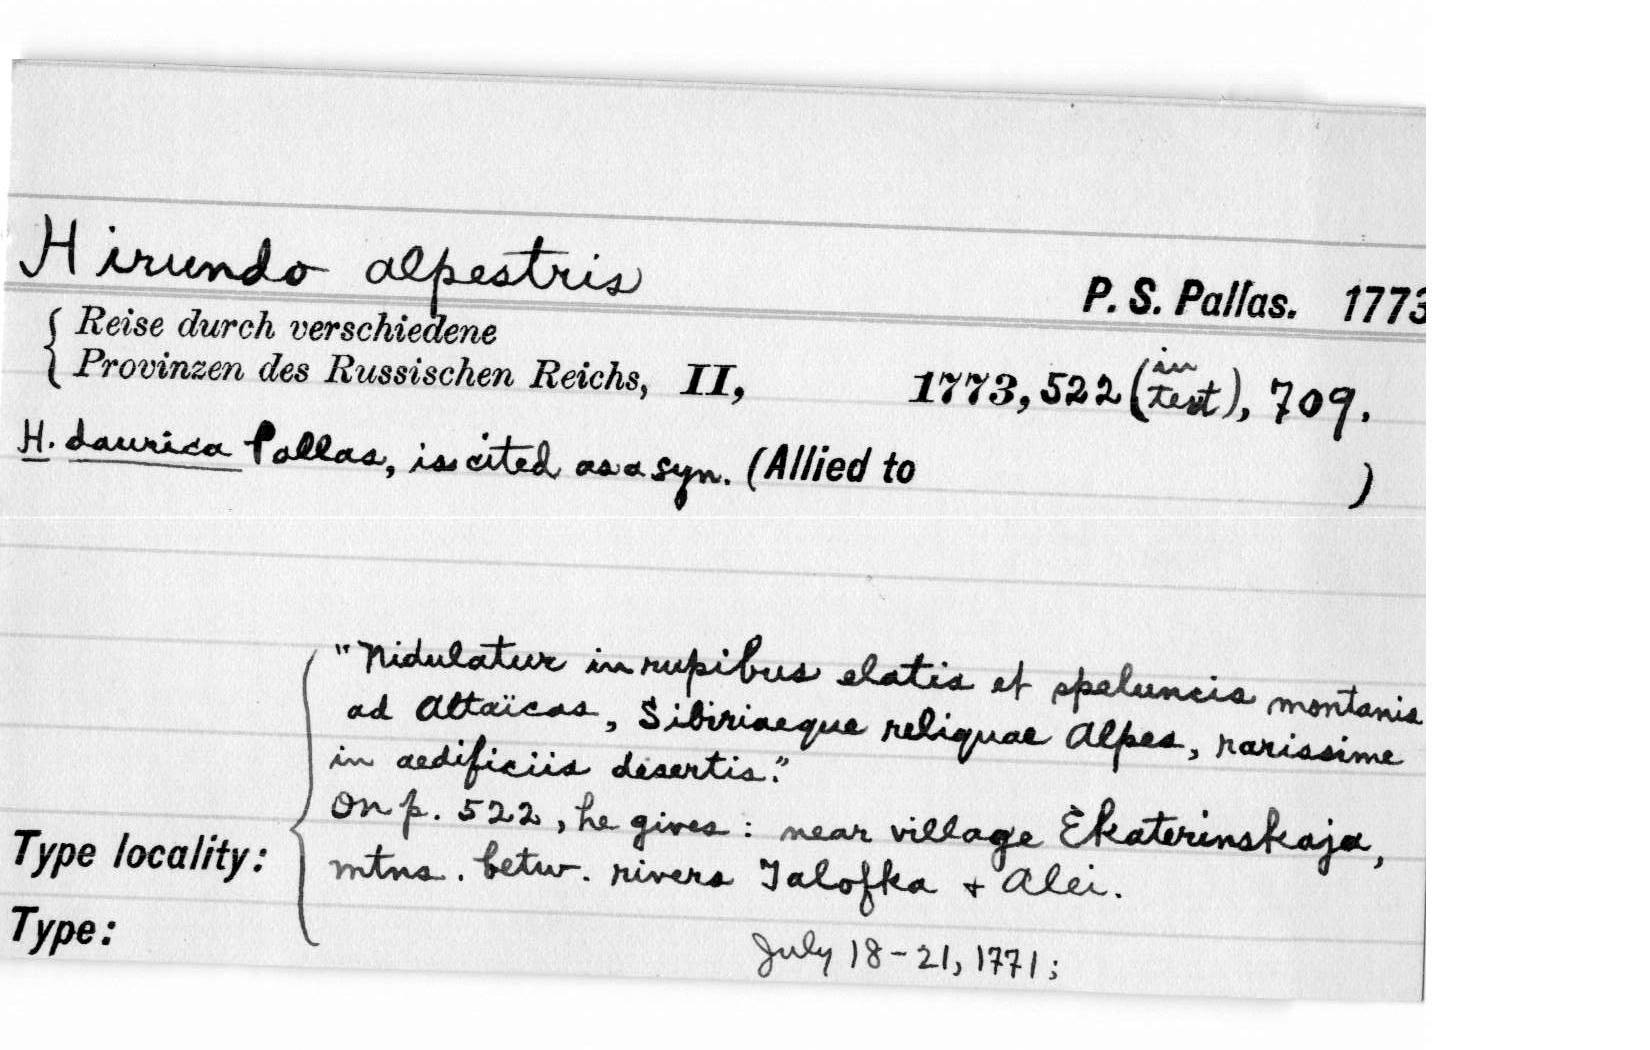 Hirundo alpestris
P. S. Pallas. 1773
{ Reise durch verschiedene
Provinzen des Russischen Reichs, II, 1773, 522 (in text), 709.
H. daurica Pallas, is cited as a syn. (Allied to )
"Nidulatur in rupibus elatis et speluncis montanis
ad Altaïcas, Sibiriaeque reliquae Alpes, rarissime
in aedificiis desertis."
On p. 522, he gives: near village Ekaterinskaja,
Type locality: mtns. betw. rivers Ialofka + Alei.
Type: July 18-21, 1771;